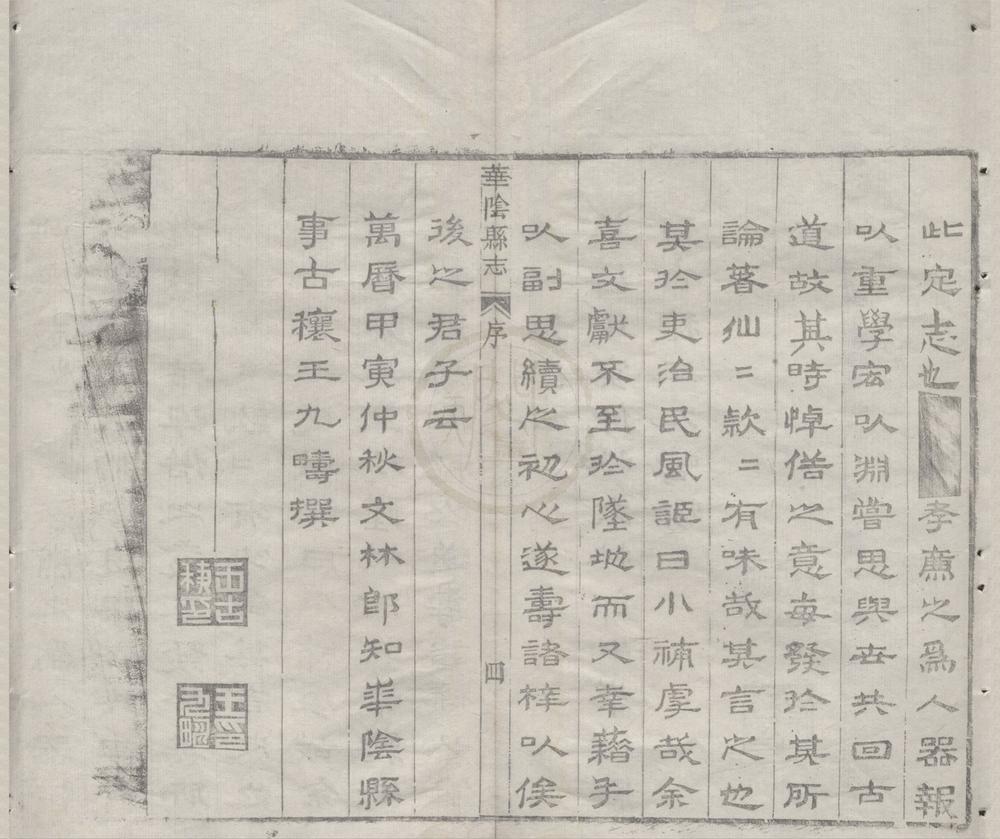 此定志也孝廉之為人器報
以重學宏以淵嘗思與世共回古
道故其時悼俗之意每發於其所
論著仙〻款〻有味哉其言之也
其於吏治民風詎曰小補虖哉余
喜文獻不至於墜地而又幸藉手
以副思續之初心遂壽諸梓以俟
後之君子云
華陰縣志
序
四
萬曆甲寅仲秋文林郎知華陰縣
事古穰王九疇撰